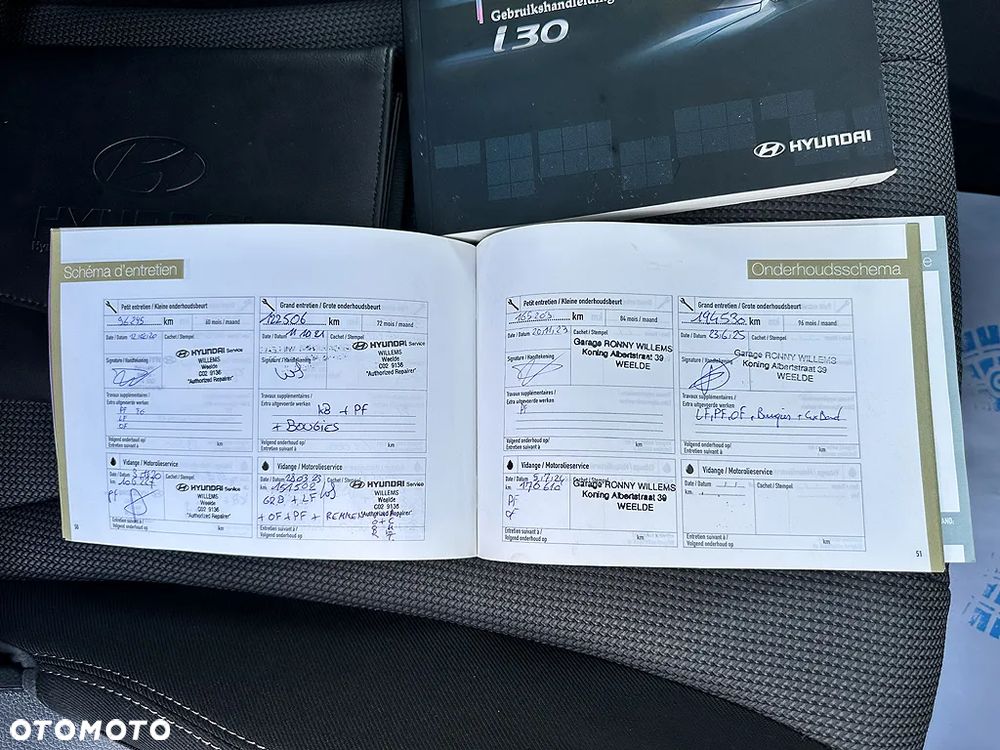 Gebruikshandleiding
i30
HYUNDAI
HYUNDAI
Schéma d'entretien
Petit entretien / Kleine onderhoudsbeurt
96245 km
60 mois / maand
Date / Datum
Cachet / Stempel
Signature / Handtekening
HYUNDAI Service
WILLEMS
Weelde
C02 9136
"Authorized Repairer"
Travaux supplémentaires /
Extra uitgevoerde werken
PF
LF
OF
Volgend onderhoud op/
Entretien suivant à
km
Grand entretien / Grote onderhoudsbeurt
122506 km
72 mois / maand
Date / Datum 11.10.21
Cachet / Stempel
Signature / Handtekening
HYUNDAI Service
WILLEMS
Weelde
C02 9136
"Authorized Repairer"
Travaux supplémentaires /
Extra uitgevoerde werken
+ PF
+ BOUGIES
Volgend onderhoud op/
Entretien suivant à
km
Vidange / Motorolieservice
Date / Datum
Cachet / Stempel
km
PF
HYUNDAI Service
WILLEMS
Weelde
C02 9136
"Authorized Repairer"
Entretien suivant à /
Volgend onderhoud op
km
Vidange / Motorolieservice
Date / Datum 28.03.23
Cachet / Stempel
km 151502
+ LF
+ OF + PF + REMMEN
HYUNDAI Service
WILLEMS
Weelde
C02 9136
"Authorized Repairer"
Entretien suivant à /
Volgend onderhoud op
50
Onderhoudsschema
Petit entretien / Kleine onderhoudsbeurt
165203 km
84 mois / maand
Date / Datum 20.11.23
Cachet / Stempel
Signature / Handtekening
Garage RONNY WILLEMS
Koning Albertstraat 39
WEELDE
Travaux supplémentaires /
Extra uitgevoerde werken
PF
Volgend onderhoud op/
Entretien suivant à
km
Grand entretien / Grote onderhoudsbeurt
194530 km
96 mois / maand
Date / Datum 23.6.25
Cachet / Stempel
Signature / Handtekening
Garage RONNY WILLEMS
Koning Albertstraat 39
WEELDE
Travaux supplémentaires /
Extra uitgevoerde werken
LF, PF, OF, Bougies +
Volgend onderhoud op/
Entretien suivant à
km
Vidange / Motorolieservice
Date / Datum 5.7.24
Cachet / Stempel
km 178610
PF
OF
Garage RONNY WILLEMS
Koning Albertstraat 39
WEELDE
Entretien suivant à /
Volgend onderhoud op
km
Vidange / Motorolieservice
Date / Datum
Cachet / Stempel
km
Entretien suivant à /
Volgend onderhoud op
km
51
OTOMOTO